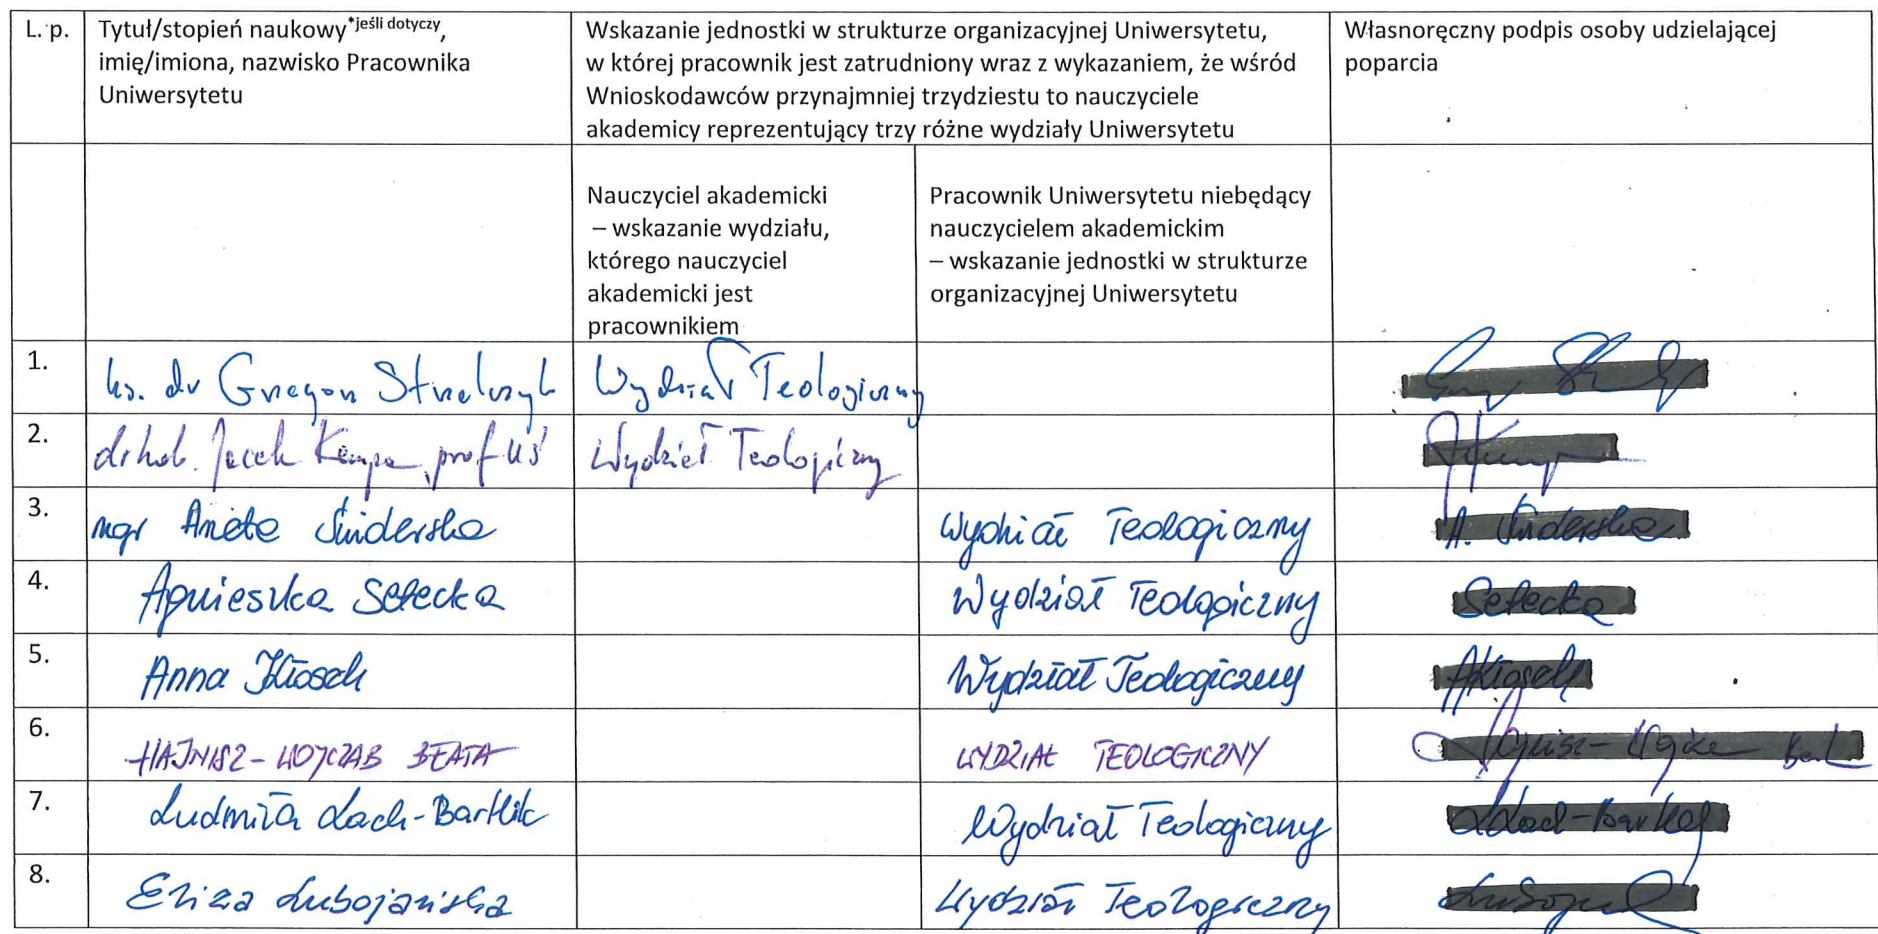 L. p.
Tytuł/stopień naukowy*jeśli dotyczy,
imię/imiona, nazwisko Pracownika
Uniwersytetu
Wskazanie jednostki w strukturze organizacyjnej Uniwersytetu,
w której pracownik jest zatrudniony wraz z wykazaniem, że wśród
Wnioskodawców przynajmniej trzydziestu to nauczyciele
akademicy reprezentujący trzy różne wydziały Uniwersytetu
Własnoręczny podpis osoby udzielającej
poparcia
Nauczyciel akademicki
– wskazanie wydziału,
którego nauczyciel
akademicki jest
pracownikiem
Pracownik Uniwersytetu niebędący
nauczycielem akademickim
– wskazanie jednostki w strukturze
organizacyjnej Uniwersytetu
1. ks. dr Grzegorz Strzelczyk Wydział Teologiczny
2. dr hab. Jacek Kempa, prof UŚ Wydział Teologiczny
3. mgr Aneta Świderska Wydział Teologiczny A. Świderska
4. Agnieszka Sełecka Wydział Teologiczny Sełecka
5. Anna Kłosek Wydział Teologiczny AKłosek
6. HAJNISZ-WOJCZAB BEATA WYDZIAŁ TEOLOGICZNY
7. Ludmiła Lach-Bartlik Wydział Teologiczny LLach-Bartlik
8. Eliza Lubojańska Wydział Teologiczny